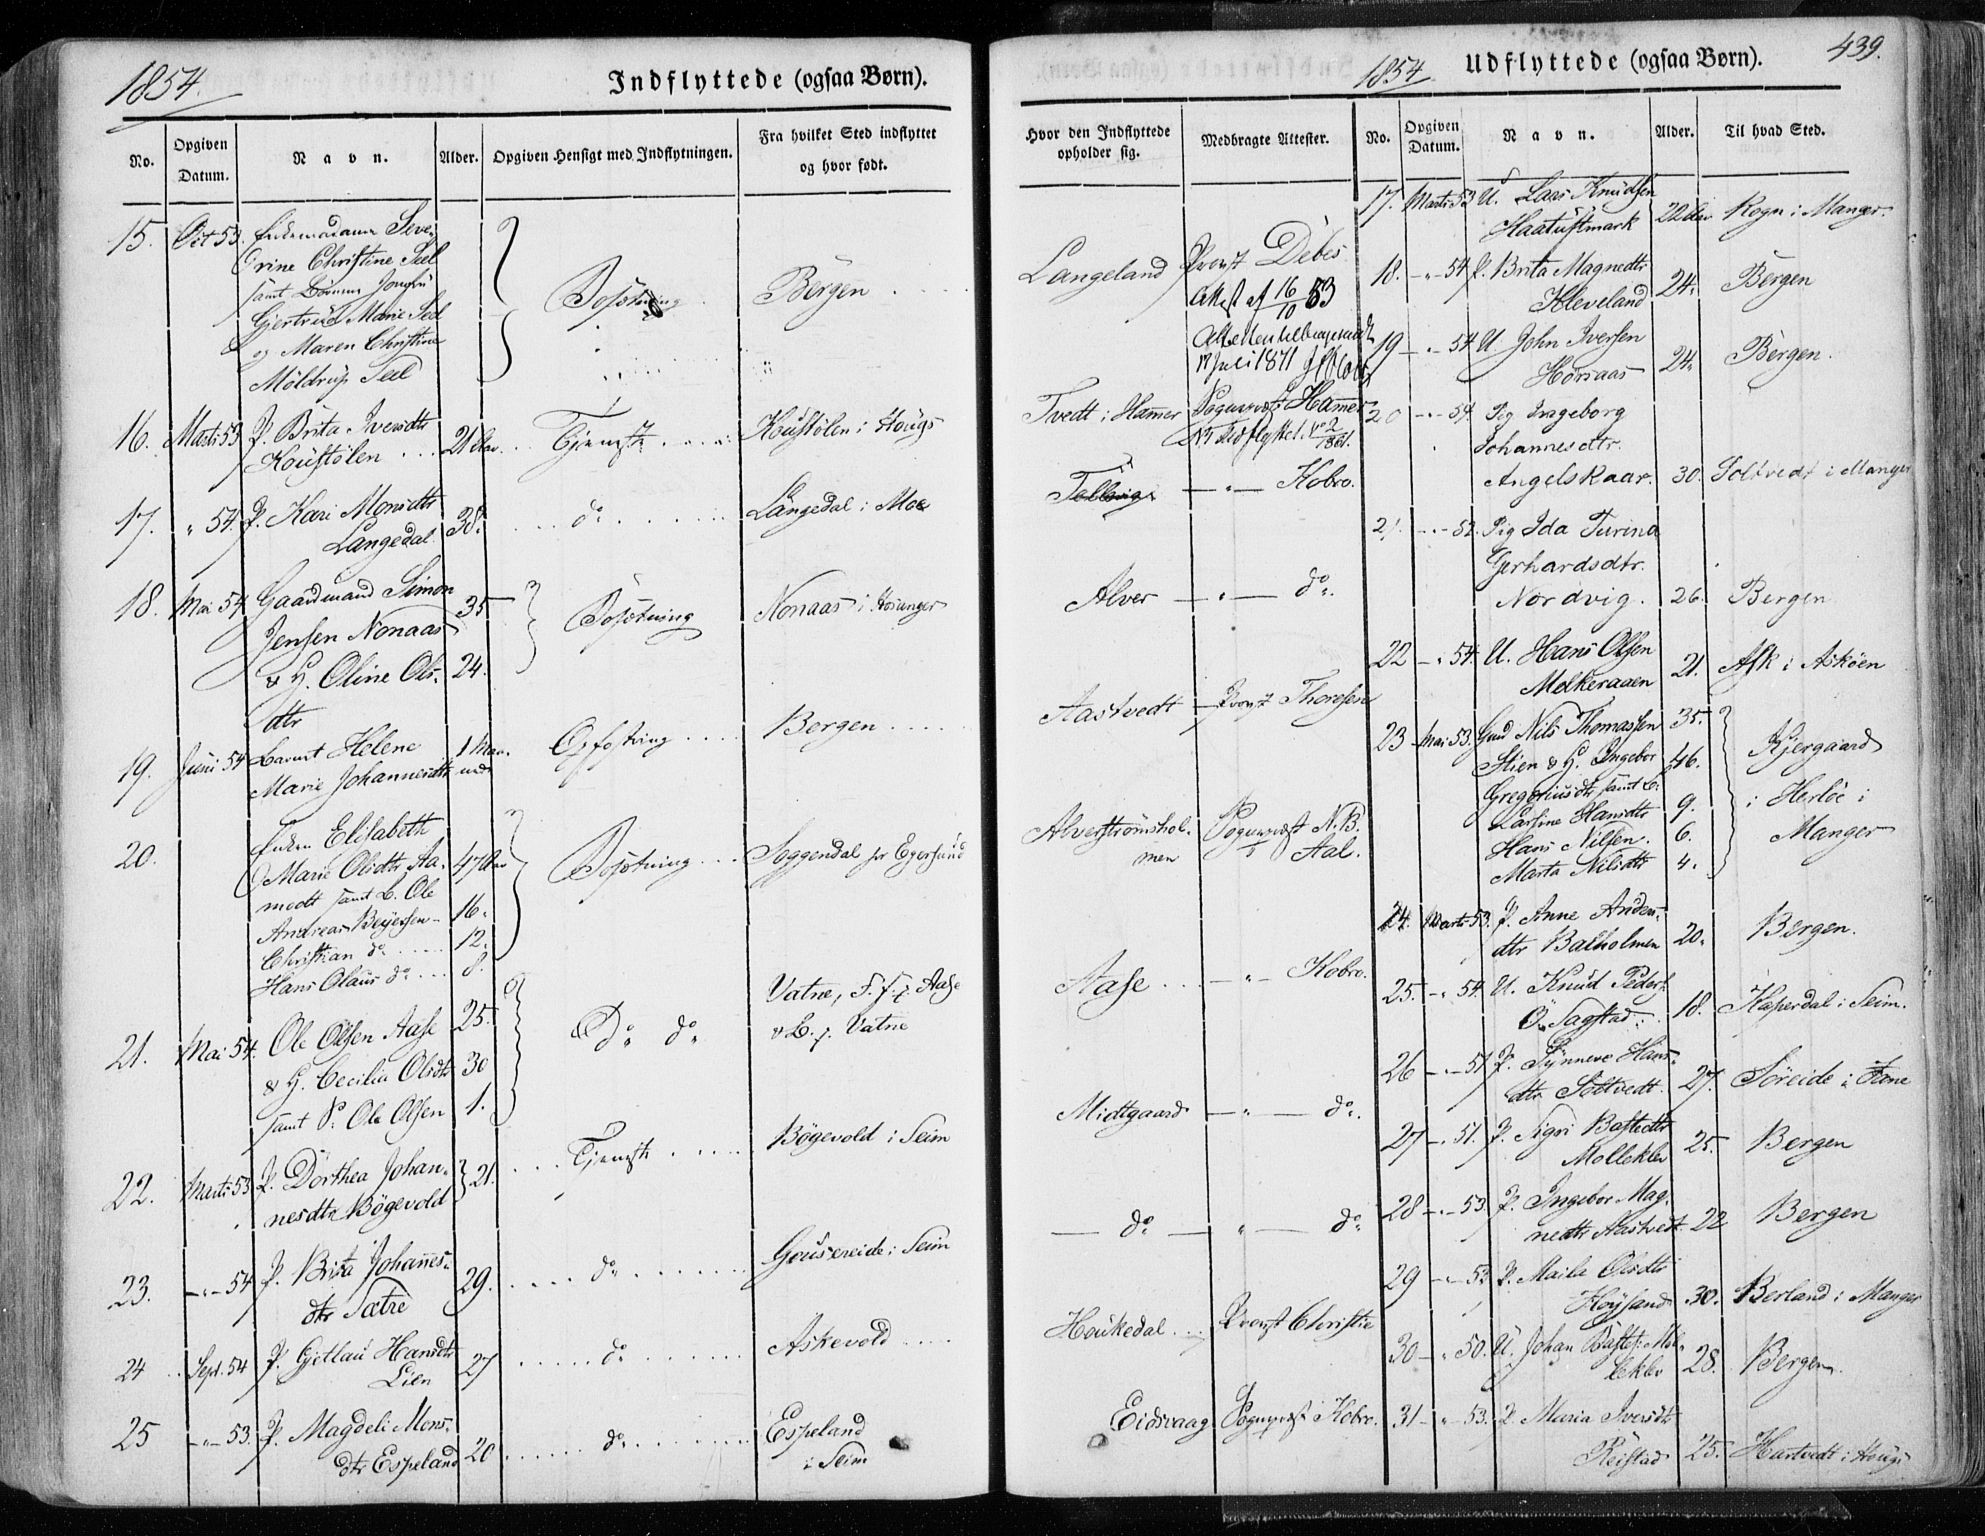 1854.
Indflyttede (ogsaa Børn).
No.
Opgiven
Datum.
Navn.
Alder.
Opgiven Hensigt med Indflytningen.
Fra hvilket Sted indflyttet
og hvor født.
15. Oct 53. Enkemadame Seve-
rine Christine Seel
samt Børnene Jomfru
Gjertrud Marie Seel
og Maren Christine
Möldrup Seel
Bosætning
Bergen
16. Marts 53 P. Brita Iversdtr
Koustölen 21 Aar Tjeneste Koustölen i Hougs
17. " 54. P. Kari Monsdtr
Langedal 38. do Langedal i Moe
18. Mai 54. Gaardmand Simon
Jensen Nonaas 35
& H. Oline Ols- 24.
dtr
Bosætning Nonaas i Hosanger
19. Juni 54 Barnet Helene
Marie Johannesdtr 1 Maa-
ned
Opfostring Bergen
20. Enken Elisabeth
Marie Olsdtr Aa- 47 Aar
modt samt B. Ole
Andreas Beyersen 16.
Christian do 12.
Hans Olaus do 8.
Bosætning Soggendal pr Egersund
21. Mai 54. Ole Olsen Aase 25.
& H. Cecilia Olsdtr 30
samt S. Ole Olsen 1.
Do do Vatne, F. f. p. Aase
& B. p. Vatne
22. Marts 53 P. Dorthea Johan-
nesdtr Bögevold 21. Tjeneste Bögevold i Seim
23. -"- 54 P. Brita Johannes-
dtr Sætre 29. do Geusereide i Seim
24 Sept. 54 P. Gjetlau Hansdtr
Lien 27 do Askevold
25 -"- 53. P. Magdeli Mons-
dtr Espeland 20 do Espeland
i Seim
439.
1854
Udflyttede (ogsaa Børn).
Hvor den Indflyttede
opholder sig.
Medbragte Attester.
No.
Opgiven
Datum.
Navn.
Alder.
Til hvad Sted.
Langeland Provst Debes
Attest af 16/10 53
17 Juli 1871
Tvedt i Hamer Sogneprest Hamer
Udflyttet No 2/1861.
Tellevig -"- Kobro.
Alver -"- do.
Aastvedt Provst Thoresen
Alverströmshol-
men Sogneprest N.B.
Aal.
Aase -"- Kobro.
Midtgaard -"- do.
do " do
Houkedal Provst Christie
Eidsvaag Sogneprest Kobro.
17. Marts 53 U. Lars Knudsen
Haatuftmark 22 Aar Rogn i Manger.
18. -"- 54 P. Brita Magnedtr
Kleveland 24. Bergen
19 -"- 54 U John Iversen
Horsaas 24. Bergen.
20 -"- 54. Pig Ingeborg
Johannesdtr.
Angelskaar. 30. Soltvedt i Manger
21. -"- 52. Pig Ida Turina
Gerhardsdtr.
Nordvig. 26. Bergen
22 -"- 54. U. Hans Olsen
Molkeraaen 21. Ask i Asköen
23 Mai 53. Gmd Nils Thomassen 35.
Stien & H. Ingebor 46.
Gregoriusdtr samt B.
Larsine Hansdtr 9.
Hans Nilsen. 6.
Marta Nilsdtr 4.
Kjergaard
i Herlöe i
Manger
24. Marts 53. P. Anne Anders-
dtr Balholmen 20. Bergen.
25. -"- 54. U. Knud Peders.
Ö. Sagstad 18. Kaperdal i Seim.
26 -"- 51 P. Synneve Hans-
dtr Soltvedt. 27. Söreide i Fane
27 -"- 51. P. Sigri Bastedtr
Mollekler 25. Bergen
28 -"- 53. P. Ingebor Mag-
nedtr Aastvedt. 22 Bergen
29 -"- 53 P. Maila Olsdtr
Höysand 30. Berland i Manger
30 -"- 50. U. Johan Bastes. Mol-
lekler 28. Bergen.
31 -"- 53. P Maria Iversdtr
Reistad 25. Hartvedt i Hougs